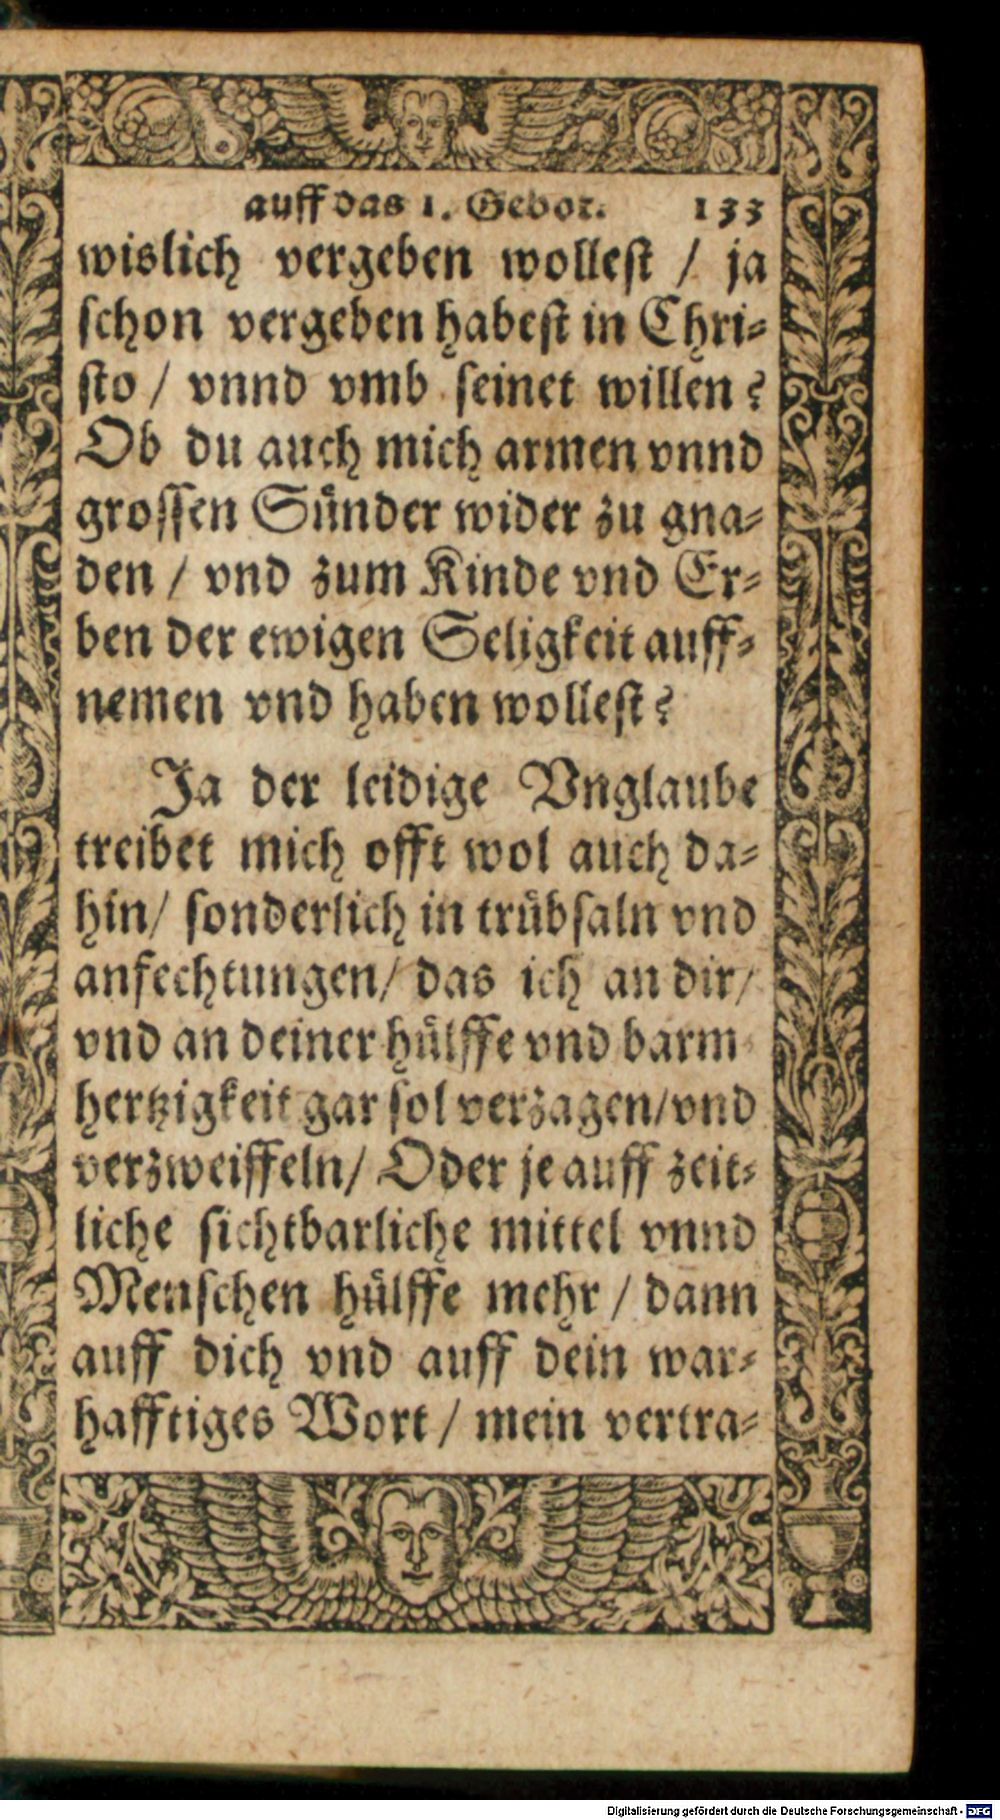 auff das 1. Gebot. 133
wislich vergeben wollest / ja
schon vergeben habest in Chri-
sto / vnnd vmb seinet willen?
Ob du auch mich armen vnnd
grossen Sünder wider zu gna-
den / vnd zum Kinde vnd Er-
ben der ewigen Seligkeit auff-
nemen vnd haben wollest?
Ja der leidige Vnglaube
treibet mich offt wol auch da-
hin / sonderlich in trübsaln vnd
anfechtungen / das ich an dir /
vnd an deiner hülffe vnd barm
hertzigkeit gar sol verzagen / vnd
verzweiffeln / Oder je auff zeit-
liche sichtbarliche mittel vnnd
Menschen hülffe mehr / dann
auff dich vnd auff dein war-
hafftiges Wort / mein vertra-
Digitalisierung gefördert durch die Deutsche Forschungsgemeinschaft - DFG